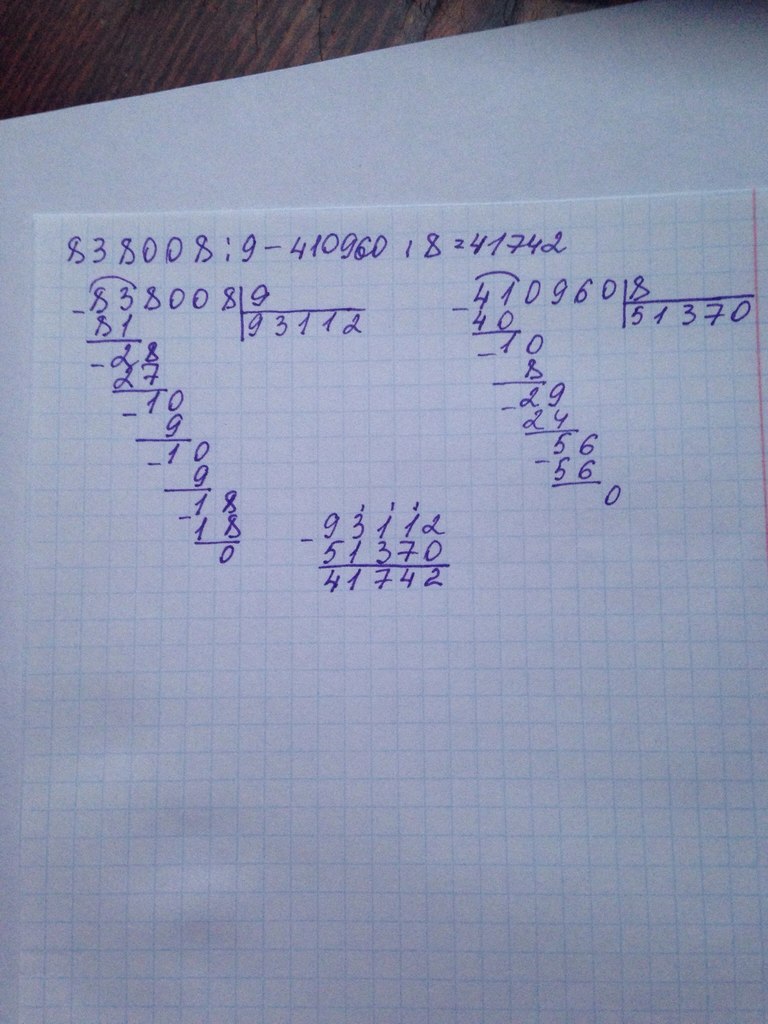 838008:9-410960:8=41742
-838008|9
81 |93112
-28
27
-10
9
-10
9
-18
18
0
-410960|8
40 |51370
-10
8
-29
24
-56
56
0
-93112
51370
41742